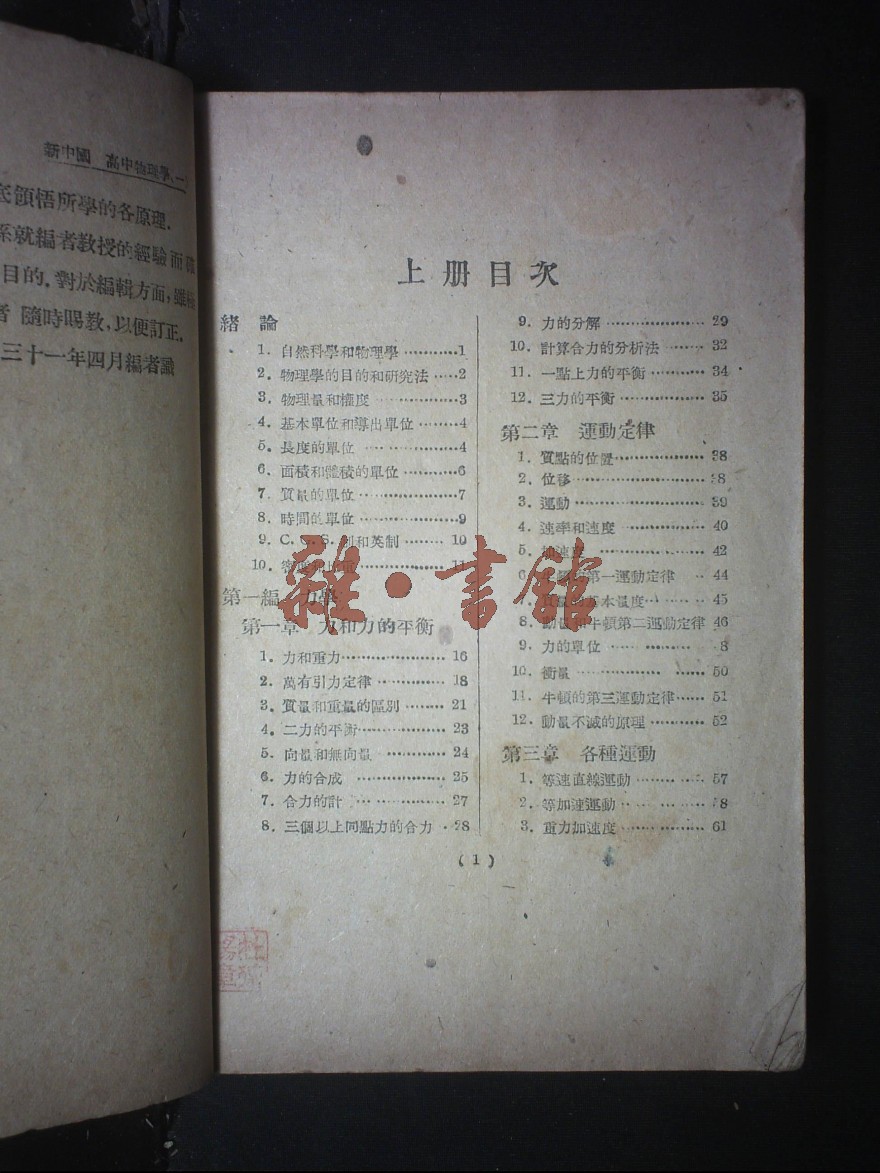 新中國 高中物理學 一
底領悟所學的各原理.
系就編者教授的經驗而
目的.對於編輯方面,雖
隨時賜教,以便訂正.
三十一年四月編者識
上册目次
緒論
1. 自然科學和物理學 ………… 1
2. 物理學的目的和研究法 …… 2
3. 物理量和權度 ………… 3
4. 基本單位和導出單位 ……… 4
5. 長度的單位 ………… 4
6. 面積和體積的單位 ………… 6
7. 質量的單位 ………… 7
8. 時間的單位 ………… 9
9. C. G. S. 制和英制 ……… 10
10. 密度和比重 ………… 11
第一編 力學
第一章 力和力的平衡
1. 力和重力 ………… 16
2. 萬有引力定律 ………… 18
3. 質量和重量的區別 ……… 21
4. 二力的平衡 ………… 23
5. 向量和無向量 ………… 24
6. 力的合成 ………… 25
7. 合力的計 ………… 27
8. 三個以上同點力的合力 … 28
9. 力的分解 ………… 29
10. 計算合力的分析法 ……… 32
11. 一點上力的平衡 ………… 34
12. 三力的平衡 ………… 35
第二章 運動定律
1. 質點的位置 ………… 38
2. 位移 ………… 38
3. 運動 ………… 39
4. 速率和速度 ………… 40
5. 加速度 ………… 42
6. 牛頓的第一運動定律 … 44
7. 質量的基本量度 ……… 45
8. 動量和牛頓第二運動定律 46
9. 力的單位 ………… 8
10. 衝量 ………… 50
11. 牛頓的第三運動定律 …… 51
12. 動量不滅的原理 ………… 52
第三章 各種運動
1. 等速直線運動 ………… 57
2. 等加速運動 ………… 58
3. 重力加速度 ………… 61
(1)
雜·書館